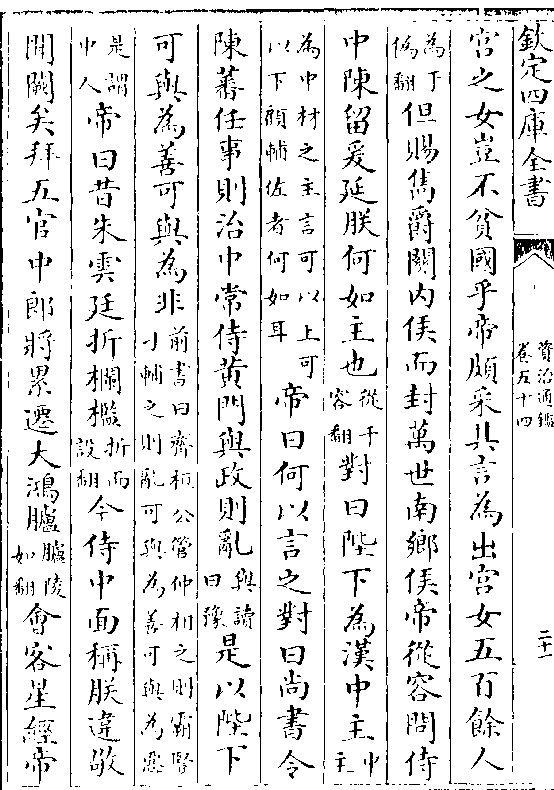 欽定四庫全書
資治通鑑
卷五十四
二十一
宮之女豈不貧國乎帝頗采其言為出宮女五百餘人
為于
偽翻
但賜雋爵關內侯而封萬世南鄉侯帝從容問侍
中陳留爰延朕何如主也
從千
容翻
對曰陛下為漢中主
中
主
為中材之主言可以上可
以下顧輔佐者何如耳
帝曰何以言之對曰尚書令
陳蕃任事則治中常侍黄門與政則亂
與讀
曰豫
是以陛下
可與為善可與為非
前書曰齊桓公管仲相之則霸豎
刁輔之則亂可與為善可與為惡
是謂
中人
帝曰昔朱雲廷折欄檻
折而
設翻
今侍中面稱朕違敬
聞闕矣拜五官中郎將累遷大鴻臚
臚陵
如翻
會客星經帝